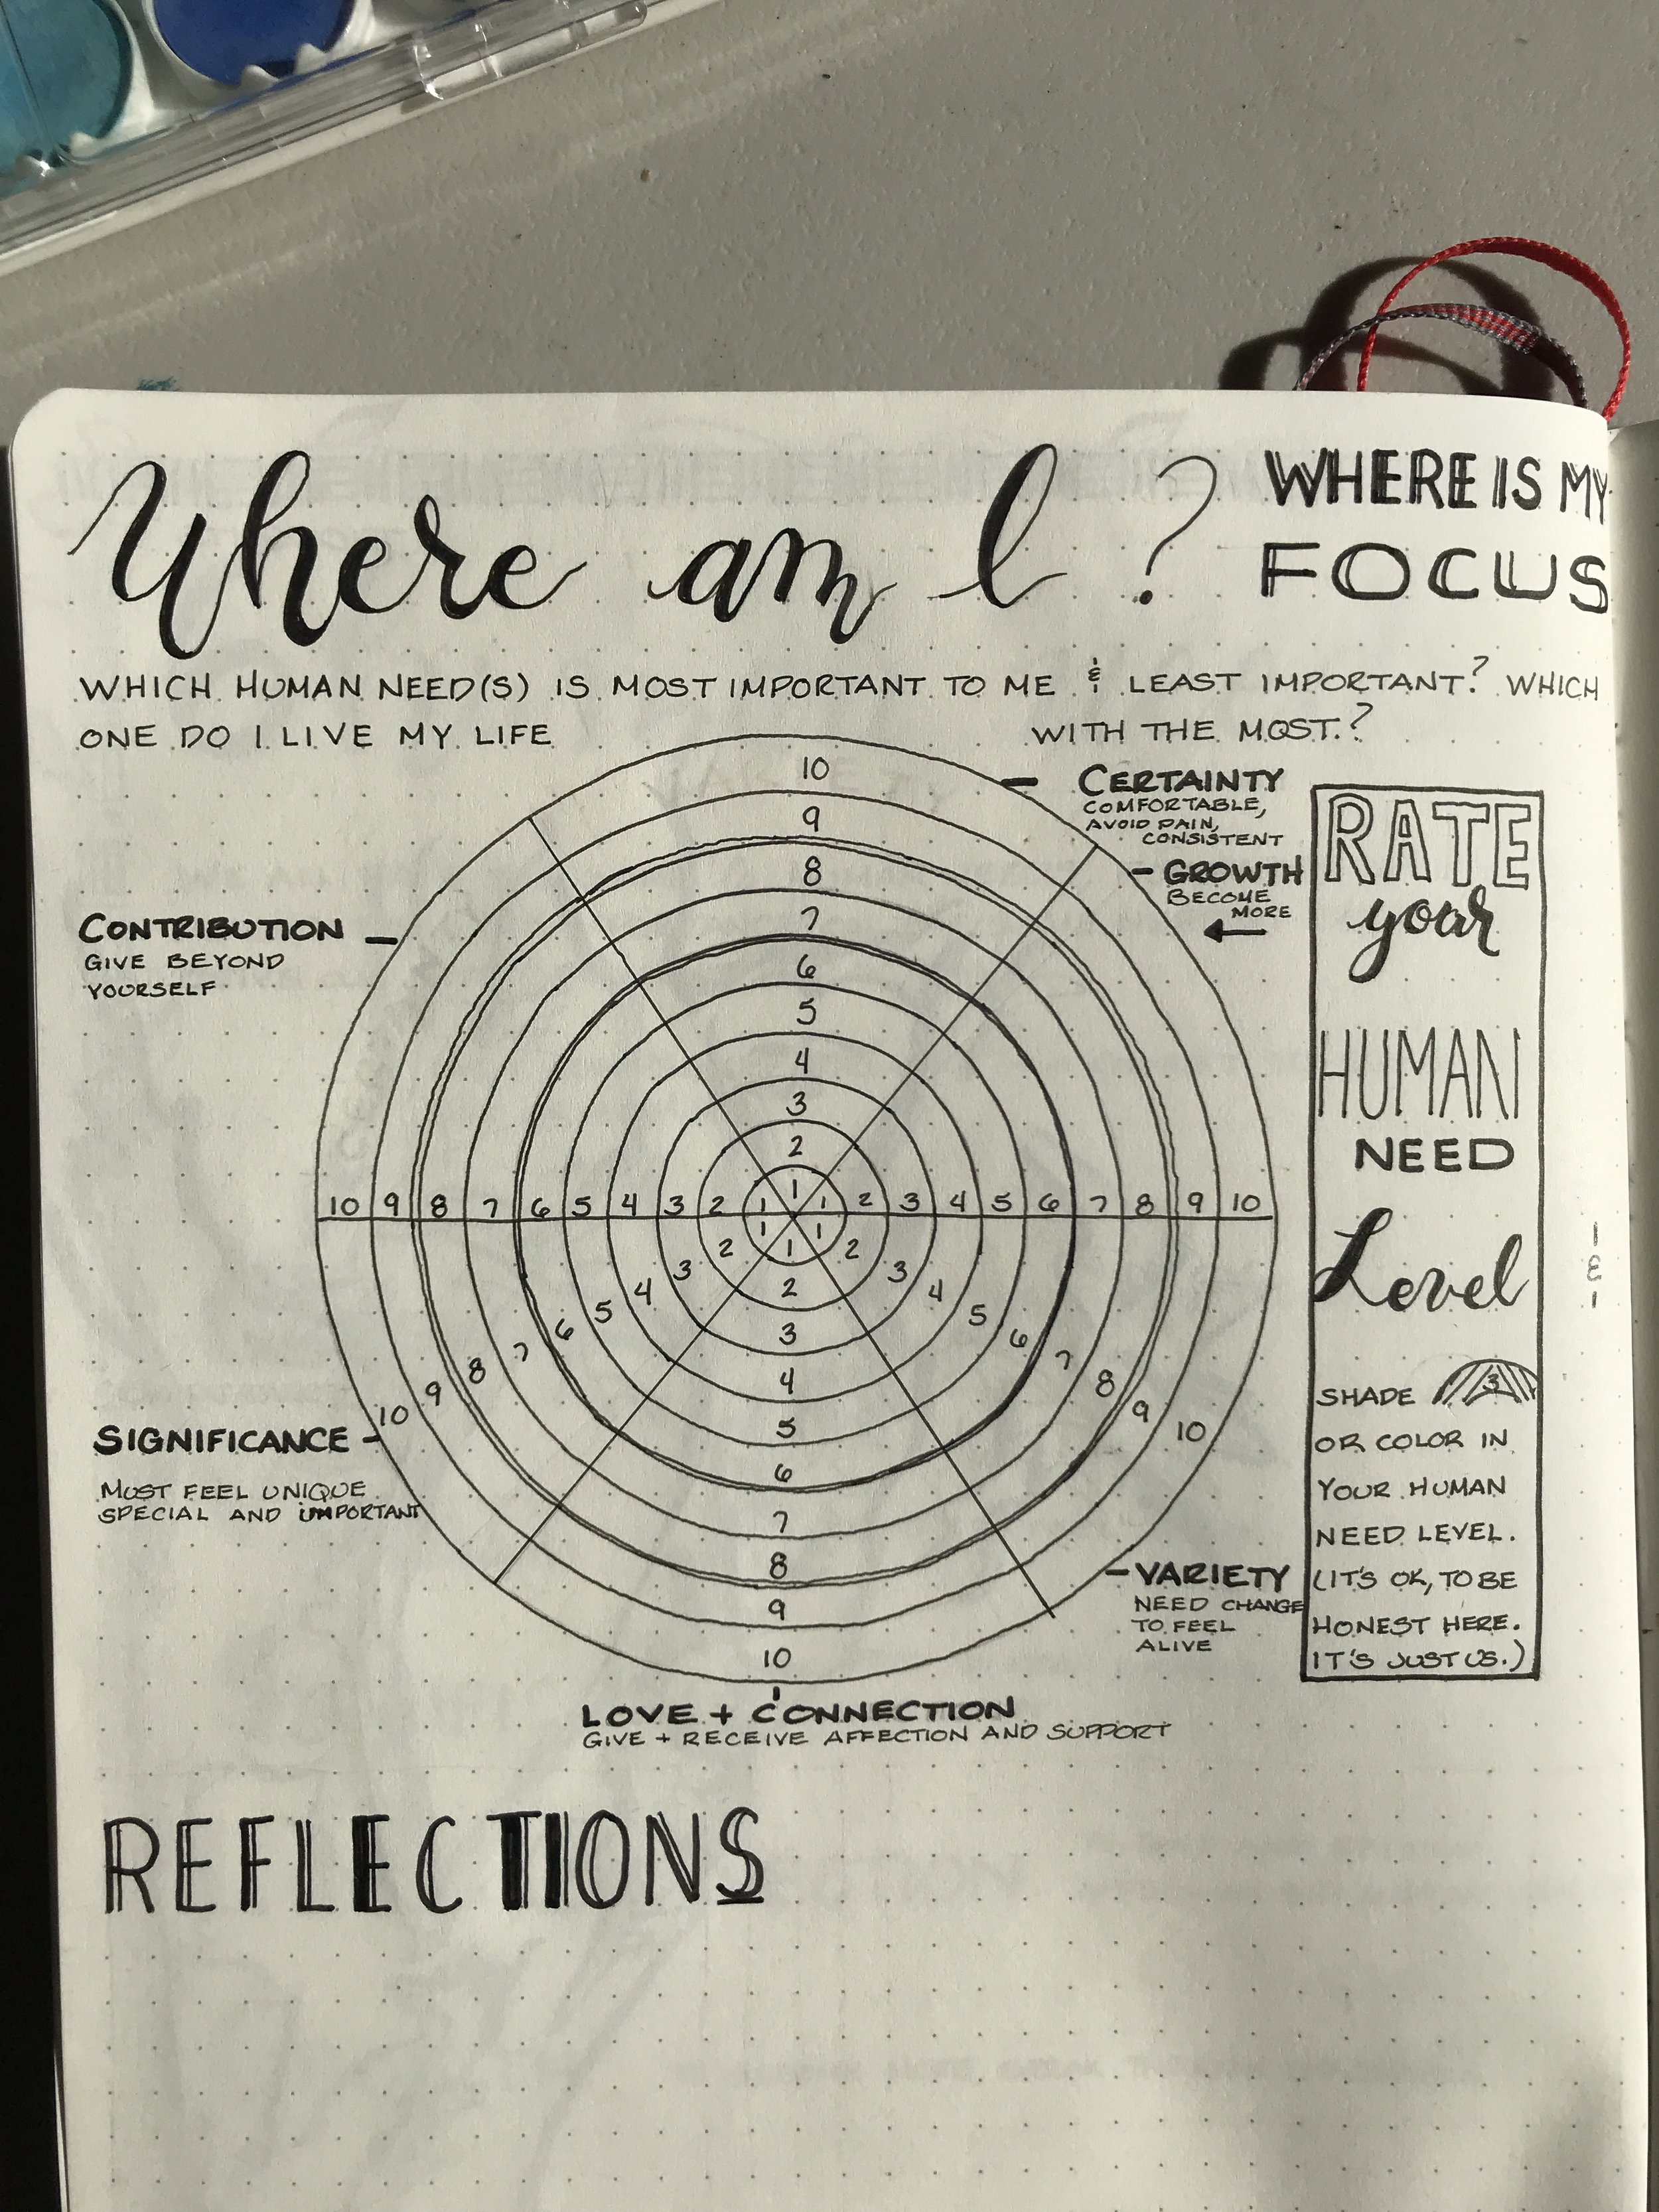 Where am I ?
WHERE IS MY
FOCUS
WHICH HUMAN NEED(S) IS MOST IMPORTANT TO ME & LEAST IMPORTANT? WHICH
ONE DO I LIVE MY LIFE WITH THE MOST?
CERTAINTY
COMFORTABLE,
AVOID PAIN,
CONSISTENT
GROWTH
BECOME
MORE
CONTRIBUTION
GIVE BEYOND
YOURSELF
10
9
8
7
6
5
4
3
2
1
10 9 8 7 6 5 4 3 2 1 1 2 3 4 5 6 7 8 9 10
1 2 3 4 5 6 7 8 9 10
1 2 3 4 5 6 7 8 9 10
1 2 3 4 5 6 7 8 9 10
SIGNIFICANCE
MUST FEEL UNIQUE
SPECIAL AND IMPORTANT
VARIETY
NEED CHANGE
TO FEEL
ALIVE
LOVE + CONNECTION
GIVE + RECEIVE AFFECTION AND SUPPORT
RATE
your
HUMAN
NEED
Level
SHADE 3
OR COLOR IN
YOUR HUMAN
NEED LEVEL.
(IT'S OK, TO BE
HONEST HERE.
IT'S JUST US.)
REFLECTIONS